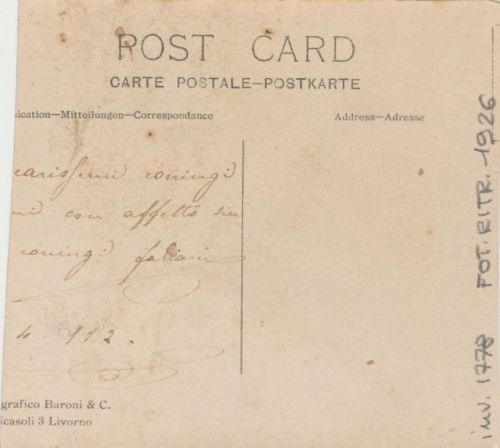 POST CARD
CARTE POSTALE—POSTKARTE
ication—Mitteilungen—Correspondance
Address—Adresse
carissimi coniugi
con affetto
coniugi
4 912
grafico Baroni & C.
icasoli 3 Livorno
inv. 1778 FOT. RITR. -1926